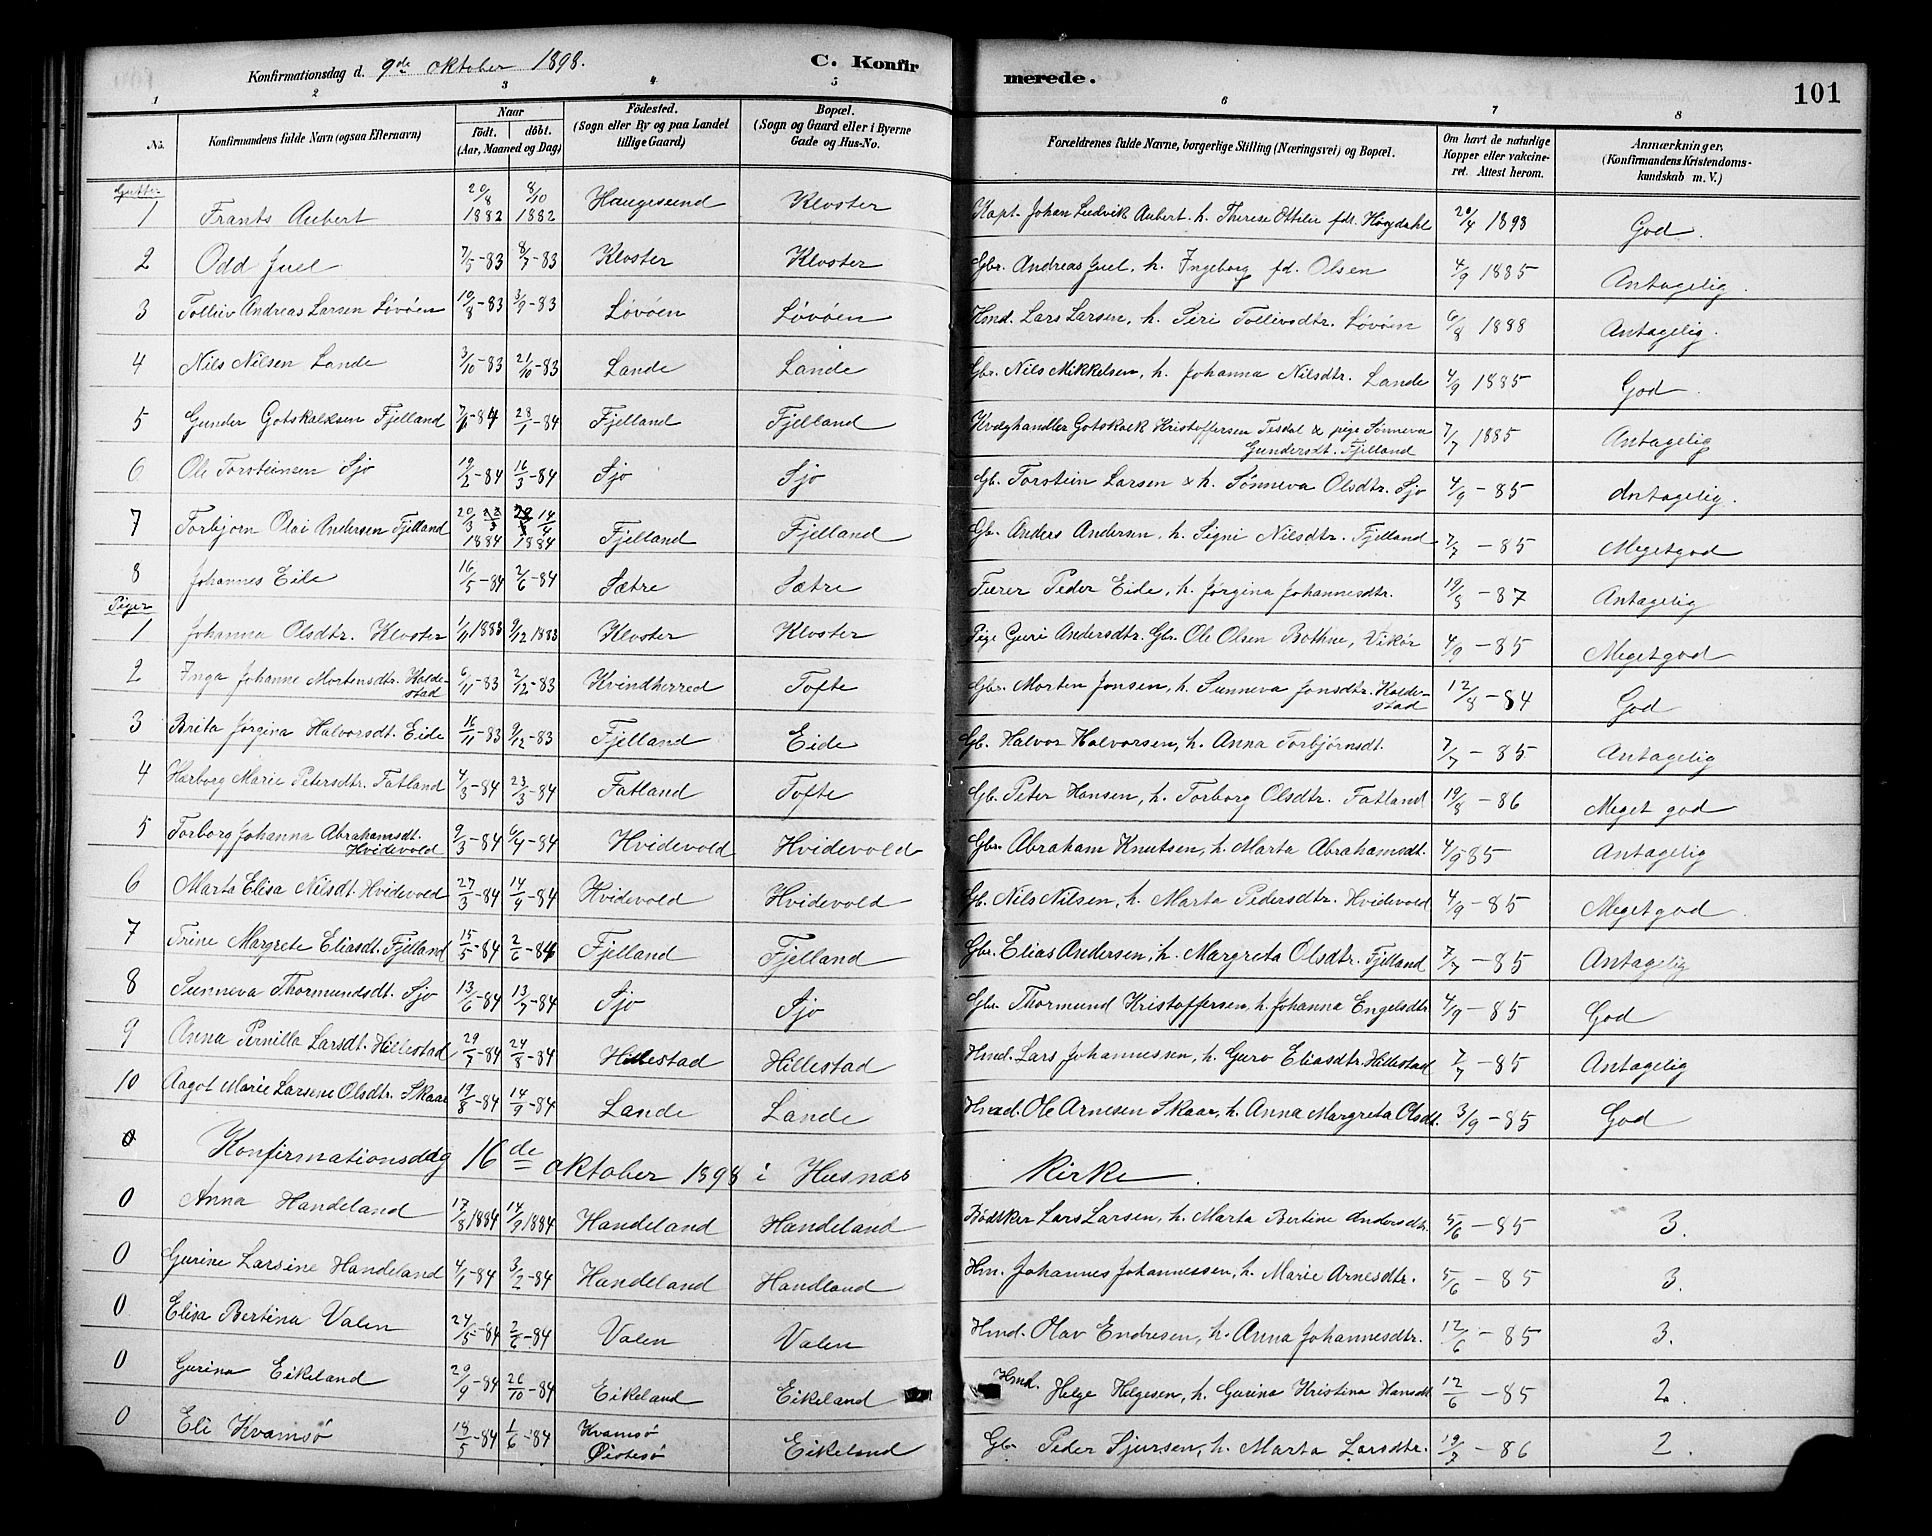 Konfirmationsdag d. 9de oktober 1898. C. Konfirmerede. 101
1 2 3 4 5 6 7 8
No. Konfirmandens fulde Navn (ogsaa Efternavn) Naar födt. döbt. (Aar, Maaned og Dag) Födested. (Sogn eller By og paa Landet tillige Gaard) Bopæl. (Sogn og Gaard eller i Byerne Gade og Hus-No. Forældrenes fulde Navne, borgerlige Stilling (Næringsvei) og Bopæl. Om havt de naturlige Kopper eller vakcineret. Attest herom. Anmærkninger. (Konfirmandens Kristendomskundskab m. V.)
Gutter
1 Frants Aubert 20/8 1882 8/10 1882 Haugesund Kloster Kapt. Johan Ludvik Aubert. h. Therese Ottelie fdt. Høegdahl 20/4 1898 God.
2 Odd Juel 7/5-83 8/7-83 Kloster Kloster Gbr. Andreas Juel, h. Ingeborg fd. Olsen 4/9 1885 Antagelig.
3 Velleiv Andreas Larsen Løvøen 10/8-83 3/9-83 Løvøen Løvøen Hmd. Lars Larsen, h. Siri Tollivsdtr. Løvøen 6/8 1888 Antagelig.
4 Nils Nilsen Lande 3/10-83 21/10-83 Lande Lande Gbr. Nils Mikkelsen, h. Johanna Nilsdtr. Lande 4/9 1885 God
5 Gunder Gotskalksen Fjelland 7/1-84 28/1-84 Fjelland Fjelland Kvæghandler Gotskalk Kristoffersen Tesdal & pige Sønneva Gundersdt. Fjelland 7/7 1885 Antagelig
6 Ole Torsteinsen Sjo 19/2-84 16/3-84 Sjo Sjo Gb. Torstein Larsen & h. Sønneva Olsdtr. Sjo 4/9-85 Antagelig.
7 Torbjørn Olai Andersen Fjelland 20/3 1884 14/4 1884 Fjelland Fjelland Gb. Anders Andersen, h. Signi Nilsdtr. Fjelland 7/7-85 Megetgod
8 Johannes Eide 16/5-84 2/6-84 Sætre Sætre Furer Peder Eide, h. Jørgina Johannesdtr. 19/8-87 Antagelig
Piger
1 Johanna Olsdtr. Kloster 1/11 1883 9/12 1883 Kloster Kloster Pige Guri Andersdtr. Gbr. Ole Olsen Bothne, Vikør 4/9-85 Megetgod
2 Inga Johanne Mortensdtr. Koldestad 6/11-83 2/12-83 Kvindherred Tofte Gbr. Morten Jonsen, h. Sunneva Jonsdtr. Koldestad 12/8-84 God
3 Brita Jørgina Halvorsdt. Eide 16/11-83 9/12-83 Fjelland Eide Gb. Halvor Halvorsen, h. Anna Torbjørnsdt. 7/7-85 Antagelig
4 Harborg Marie Petersdtr. Fatland 4/3-84 23/3-84 Fatland Tofte Gb. Peter Hansen, h. Torborg Olsdtr. Fatland 19/8-86 Meget god
5 Torborg Johanna Abrahamsdt. Hvidevold 9/3-84 6/4-84 Hvidevold Hvidevold Gbr. Abraham Knutsen, h. Marta Abrahamsdt. 4/9-85 Antagelig
6 Marta Elisa Nilsdt. Hvidevold 27/3-84 14/9-84 Hvidevold Hvidevold Gb. Nils Nilsen, h. Marta Pedersdtr. Hvidevold 4/9-85 Megetgod.
7 Trine Margrete Eliasdt. Fjelland 15/5-84 2/6-84 Fjelland Fjelland Gbr. Elias Andersen, h. Margreta Olsdtr. Fjelland 7/7-85 Antagelig
8 Sunneva Thormundsdt. Sjo 13/6-84 13/7-84 Sjo Sjo Gbr. Thormund Kristoffersen, h. Johanna Engelsdtr 4/9-85 God
9 Anna Pernilla Larsdt. Hillestad 29/7-84 24/8-84 Hillestad Hillestad Hmd. Lars Johannessen, h. Guro Eliasdtr. Hillestad 7/7-85 Antagelig
10 Aagot Marie Larsene Olsdtr. Skaar 19/8-84 14/9-84 Lande Lande Hmd. Ole Arnesen Skaar, h. Anna Margreta Olsdt. 3/9-85 God
0 Konfirmationsdag 16de oktober 1898 i Husnæs Kirke.
0 Anna Handeland 17/8 1884 14/9 1884 Handeland Handeland Bødtker Lars Larsen, h. Marta Bertine Andersdtr. 5/6-85 3.
0 Gurine Larsine Handeland 4/1-84 3/2-84 Handeland Handland Hm. Johannes Johannessen, h. Marie Arnesdtr. 5/6-85 3.
0 Elisa Bertina Valen 24/5-84 2/6-84 Valen Valen Hmd. Olav Endresen, h. Anna Johannesdtr. 12/6-85 3.
0 Gurina Eikeland 29/9-84 26/10-84 Eikeland Eikeland Hmd. Helge Helgesen, h. Gurina Kristina Hansdt 12/6-85 2
0 Eli Kvamsø 18/5-84 1/6-84 Kvamsø Øistesø Eikeland Gb. Peder Sjursen, h. Marta Larsdtr. 19/7-86 2.